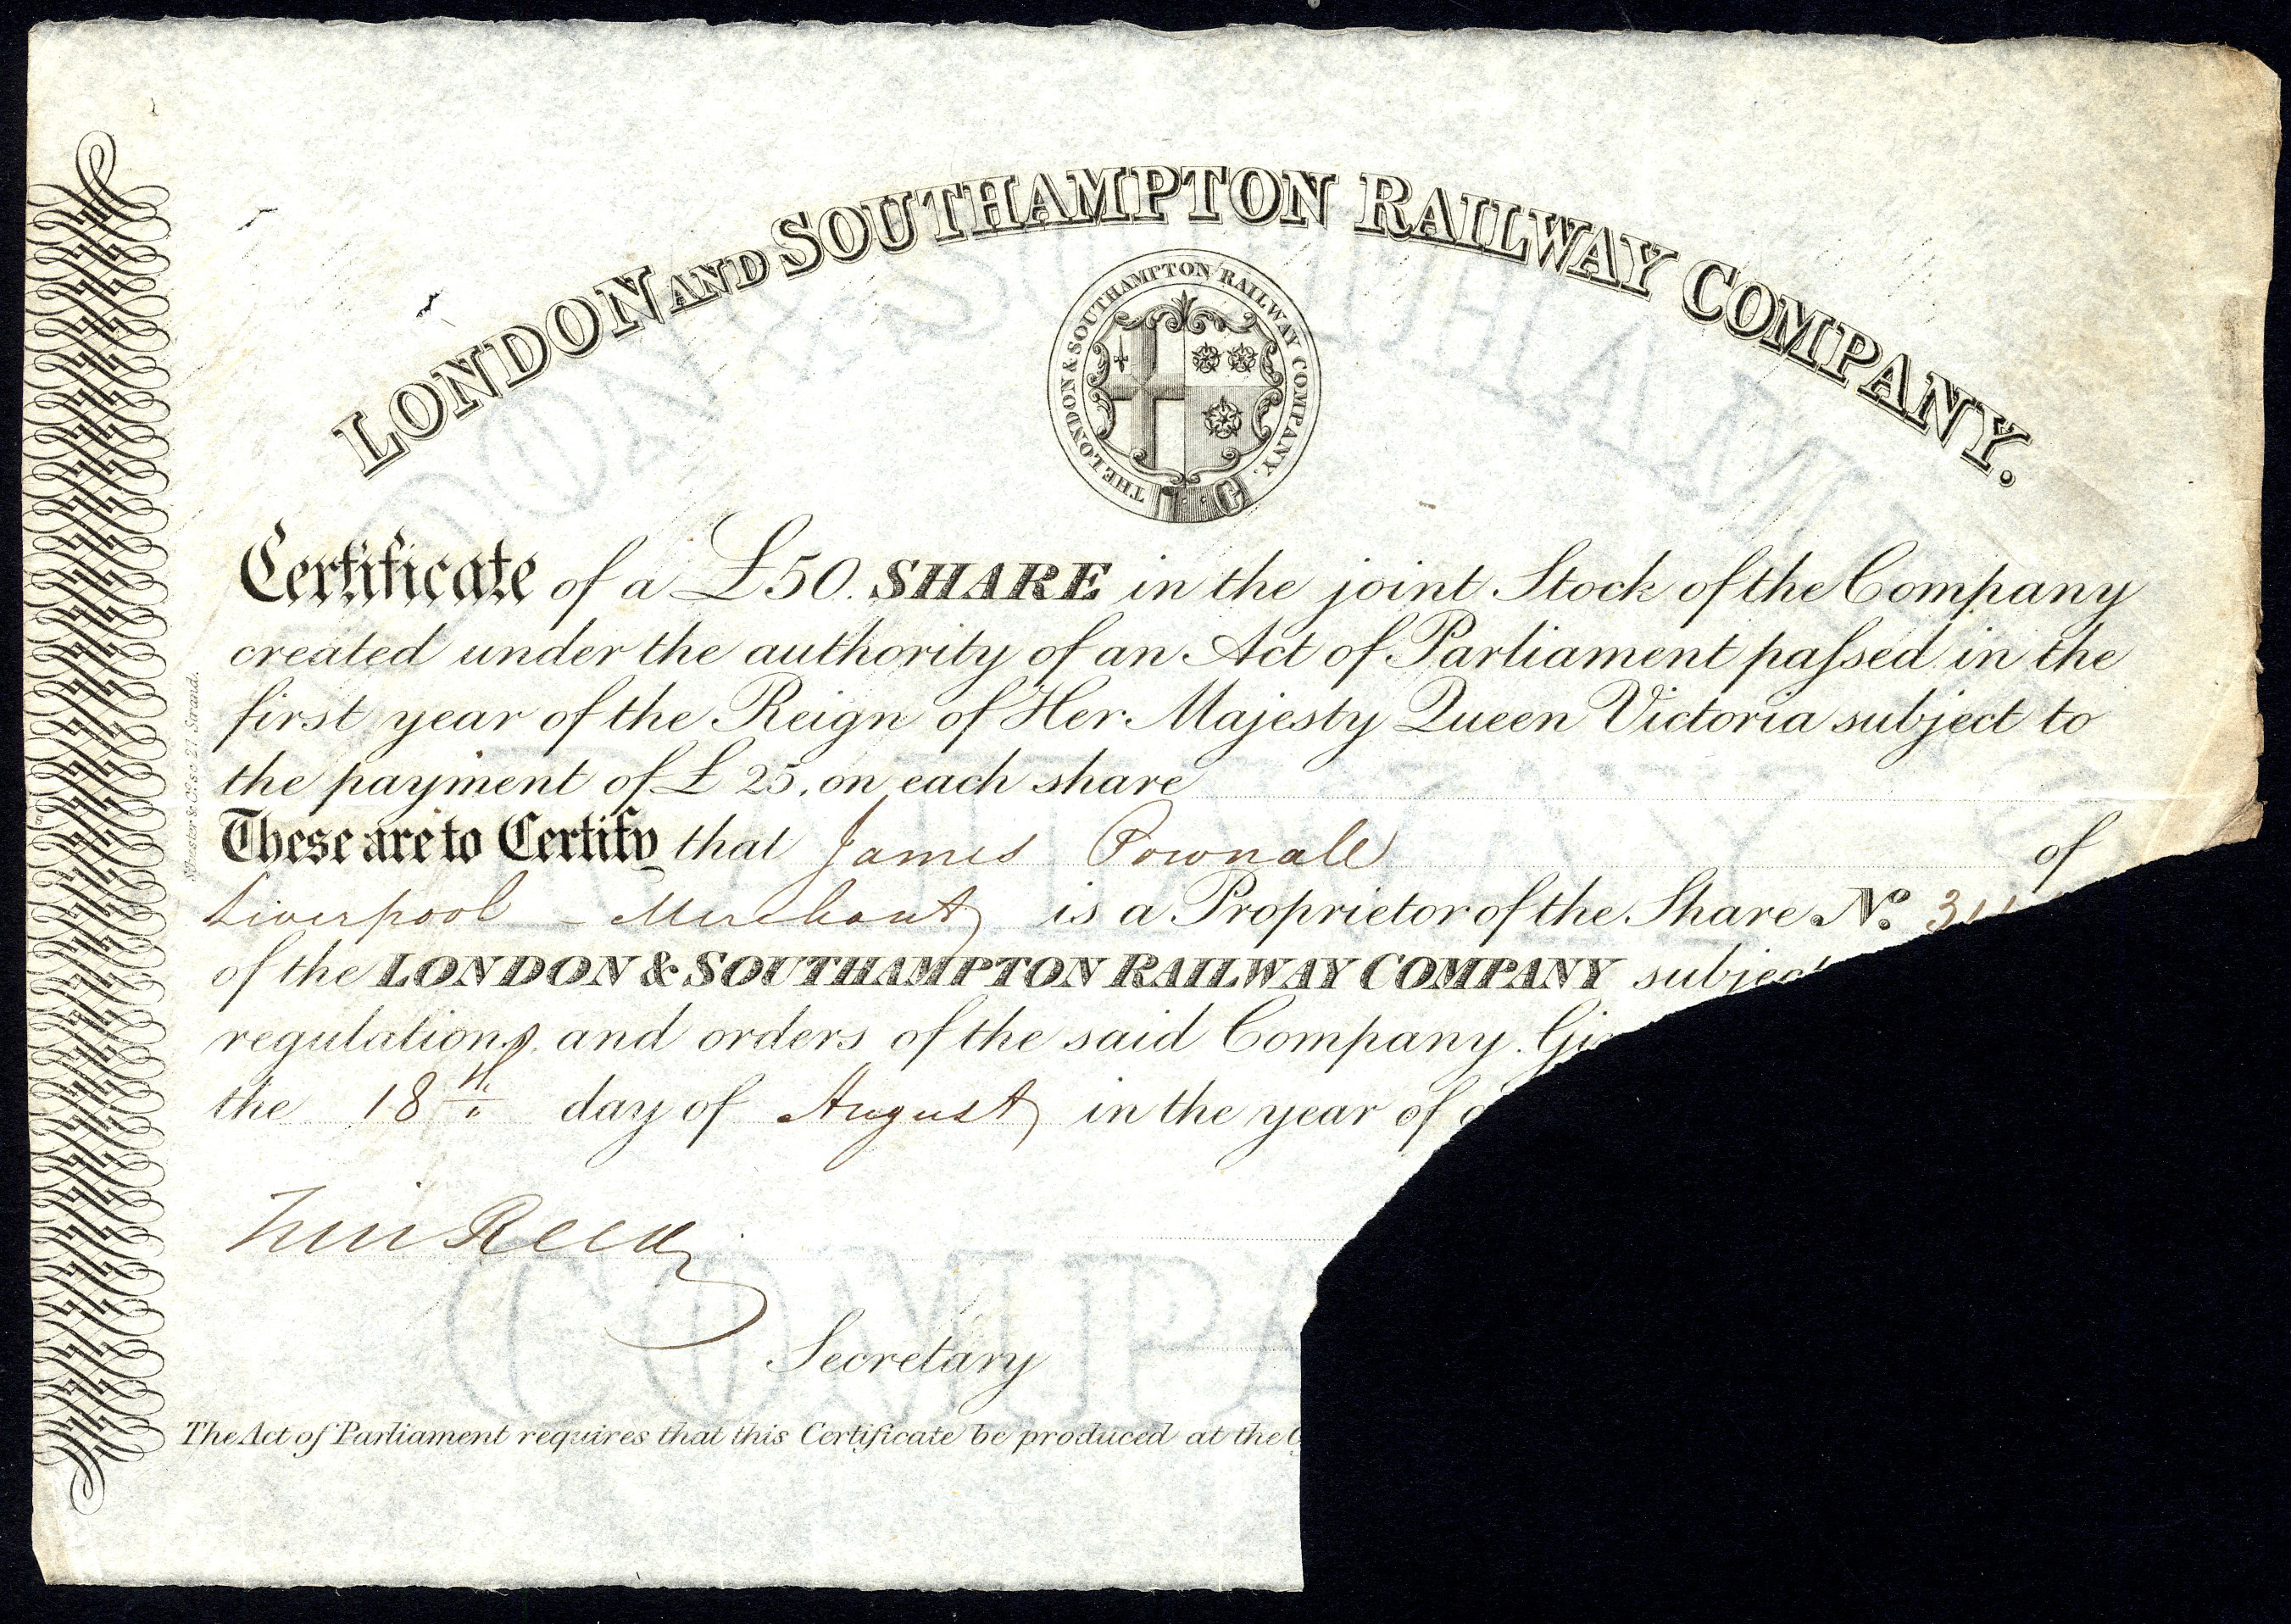 LONDON AND SOUTHAMPTON RAILWAY COMPANY.
THE LONDON & SOUTHAMPTON RAILWAY COMPANY.
Certificate of a £50. SHARE in the joint Stock of the Company
created under the authority of an Act of Parliament paſsed in the
first year of the Reign of Her Majesty Queen Victoria subject to
the payment of £ 25, on each share
These are to Certify that James Pownall of
Liverpool – Merchant is a Proprietor of the Share No. 3
of the LONDON & SOUTHAMPTON RAILWAY COMPANY subject
regulations and orders of the said Company. Gi
the 18th day of August in the year of
Wm Reed
Secretary
The Act of Parliament requires that this Certificate be produced at the
& Co. sc 21 Strand.
LONDON & SOUTHAMPTON
RAILWAY
COMPA